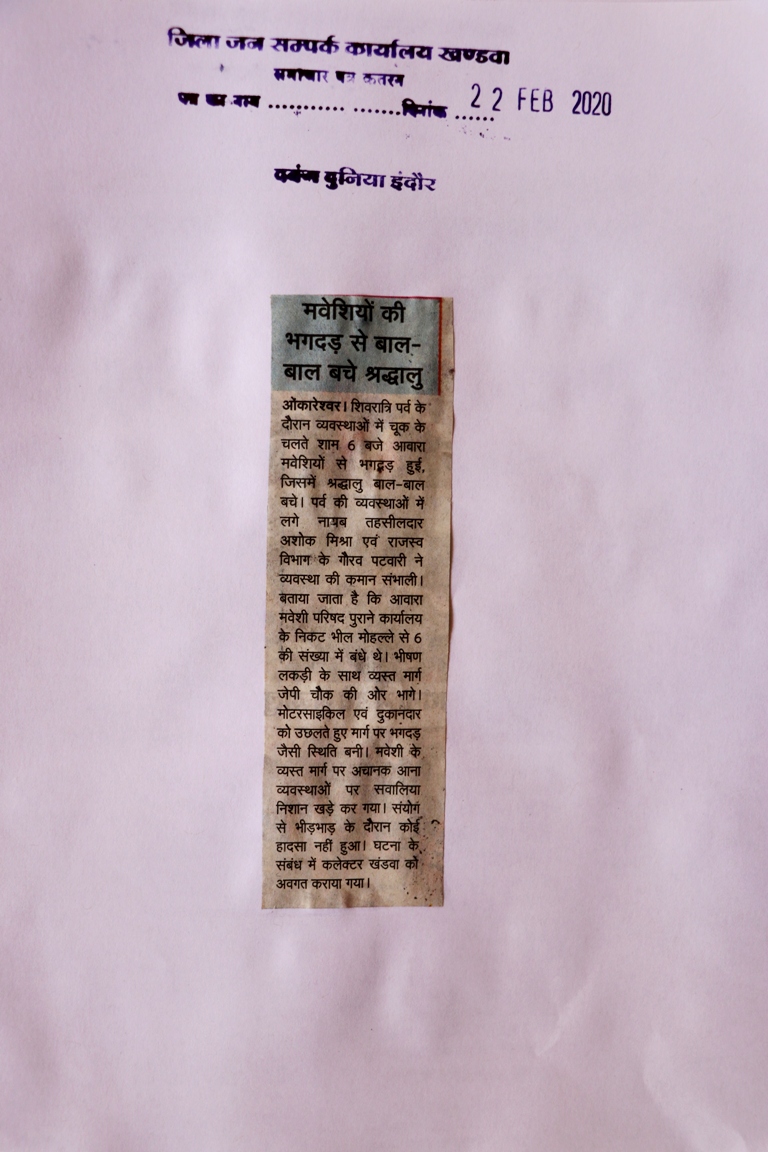 जिला जन सम्पर्क कार्यालय खण्डवा
समाचार पत्र कतरन
पत्र का नाम ........... .......दिनांक ...... 22 FEB 2020
दबंग दुनिया इंदौर
मवेशियों की
भगदड़ से बाल-
बाल बचे श्रद्धालु
ओंकारेश्वर। शिवरात्रि पर्व के
दौरान व्यवस्थाओं में चूक के
चलते शाम 6 बजे आवारा
मवेशियों से भगदड़ हुई,
जिसमें श्रद्धालु बाल-बाल
बचे। पर्व की व्यवस्थाओं में
लगे नायब तहसीलदार
अशोक मिश्रा एवं राजस्व
विभाग के गौरव पटवारी ने
व्यवस्था की कमान संभाली।
बताया जाता है कि आवारा
मवेशी परिषद पुराने कार्यालय
के निकट भील मोहल्ले से 6
की संख्या में बंधे थे। भीषण
लकड़ी के साथ व्यस्त मार्ग
जेपी चौक की ओर भागे।
मोटरसाइकिल एवं दुकानदार
को उछलते हुए मार्ग पर भगदड़
जैसी स्थिति बनी। मवेशी के
व्यस्त मार्ग पर अचानक आना
व्यवस्थाओं पर सवालिया
निशान खड़े कर गया। संयोग
से भीड़भाड़ के दौरान कोई
हादसा नहीं हुआ। घटना के
संबंध में कलेक्टर खंडवा को
अवगत कराया गया।